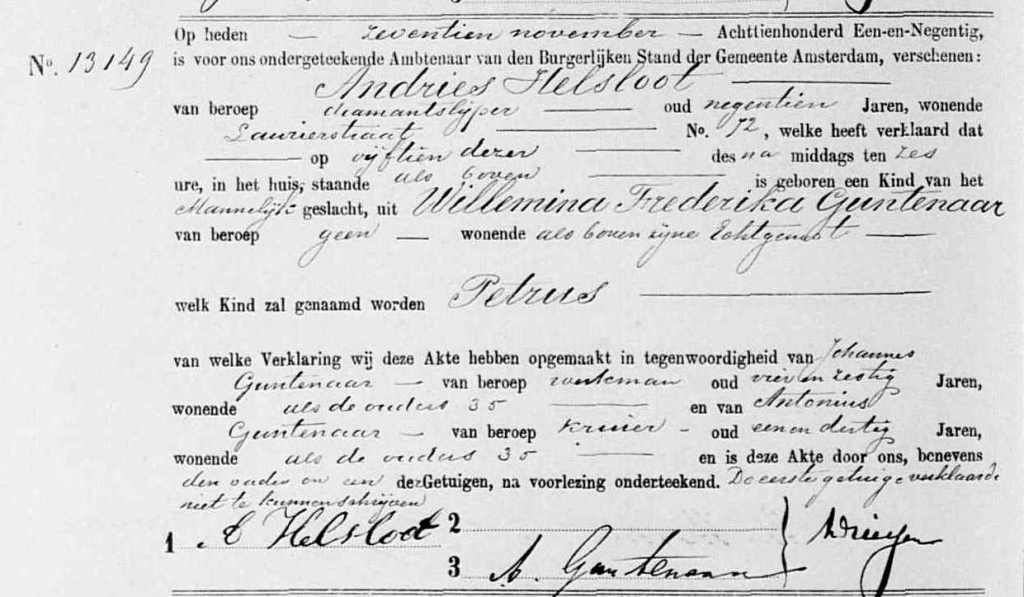 Op heden — zeventien november — Achttienhonderd Een-en-Negentig,
No. 13149 is voor ons ondergeteekende Ambtenaar van den Burgerlijken Stand der Gemeente Amsterdam, verschenen:
Andries Helsloot
van beroep diamantslijper oud negentien Jaren, wonende
Laurierstraat No. 72, welke heeft verklaard dat
op vijftien dezer des na middags ten zes
ure, in het huis, staande als boven is geboren een Kind van het
Mannelijk geslacht, uit Willemina Frederika Guntenaar
van beroep geen — wonende als boven zijne Echtgenoot
welk Kind zal genaamd worden Petrus
van welke Verklaring wij deze Akte hebben opgemaakt in tegenwoordigheid van Johannes
Guntenaar — van beroep werkman oud vier en zestig Jaren,
wonende als de ouders 35 en van Antonius
Guntenaar — van beroep kruier - oud een en dertig Jaren,
wonende als de ouders 35 en is deze Akte door ons, benevens
den vader en een der Getuigen, na voorlezing onderteekend. De eerste getuige verklaarde
niet te kunnen schrijven
1 A Helsloot 2
3 A. Guntenaar